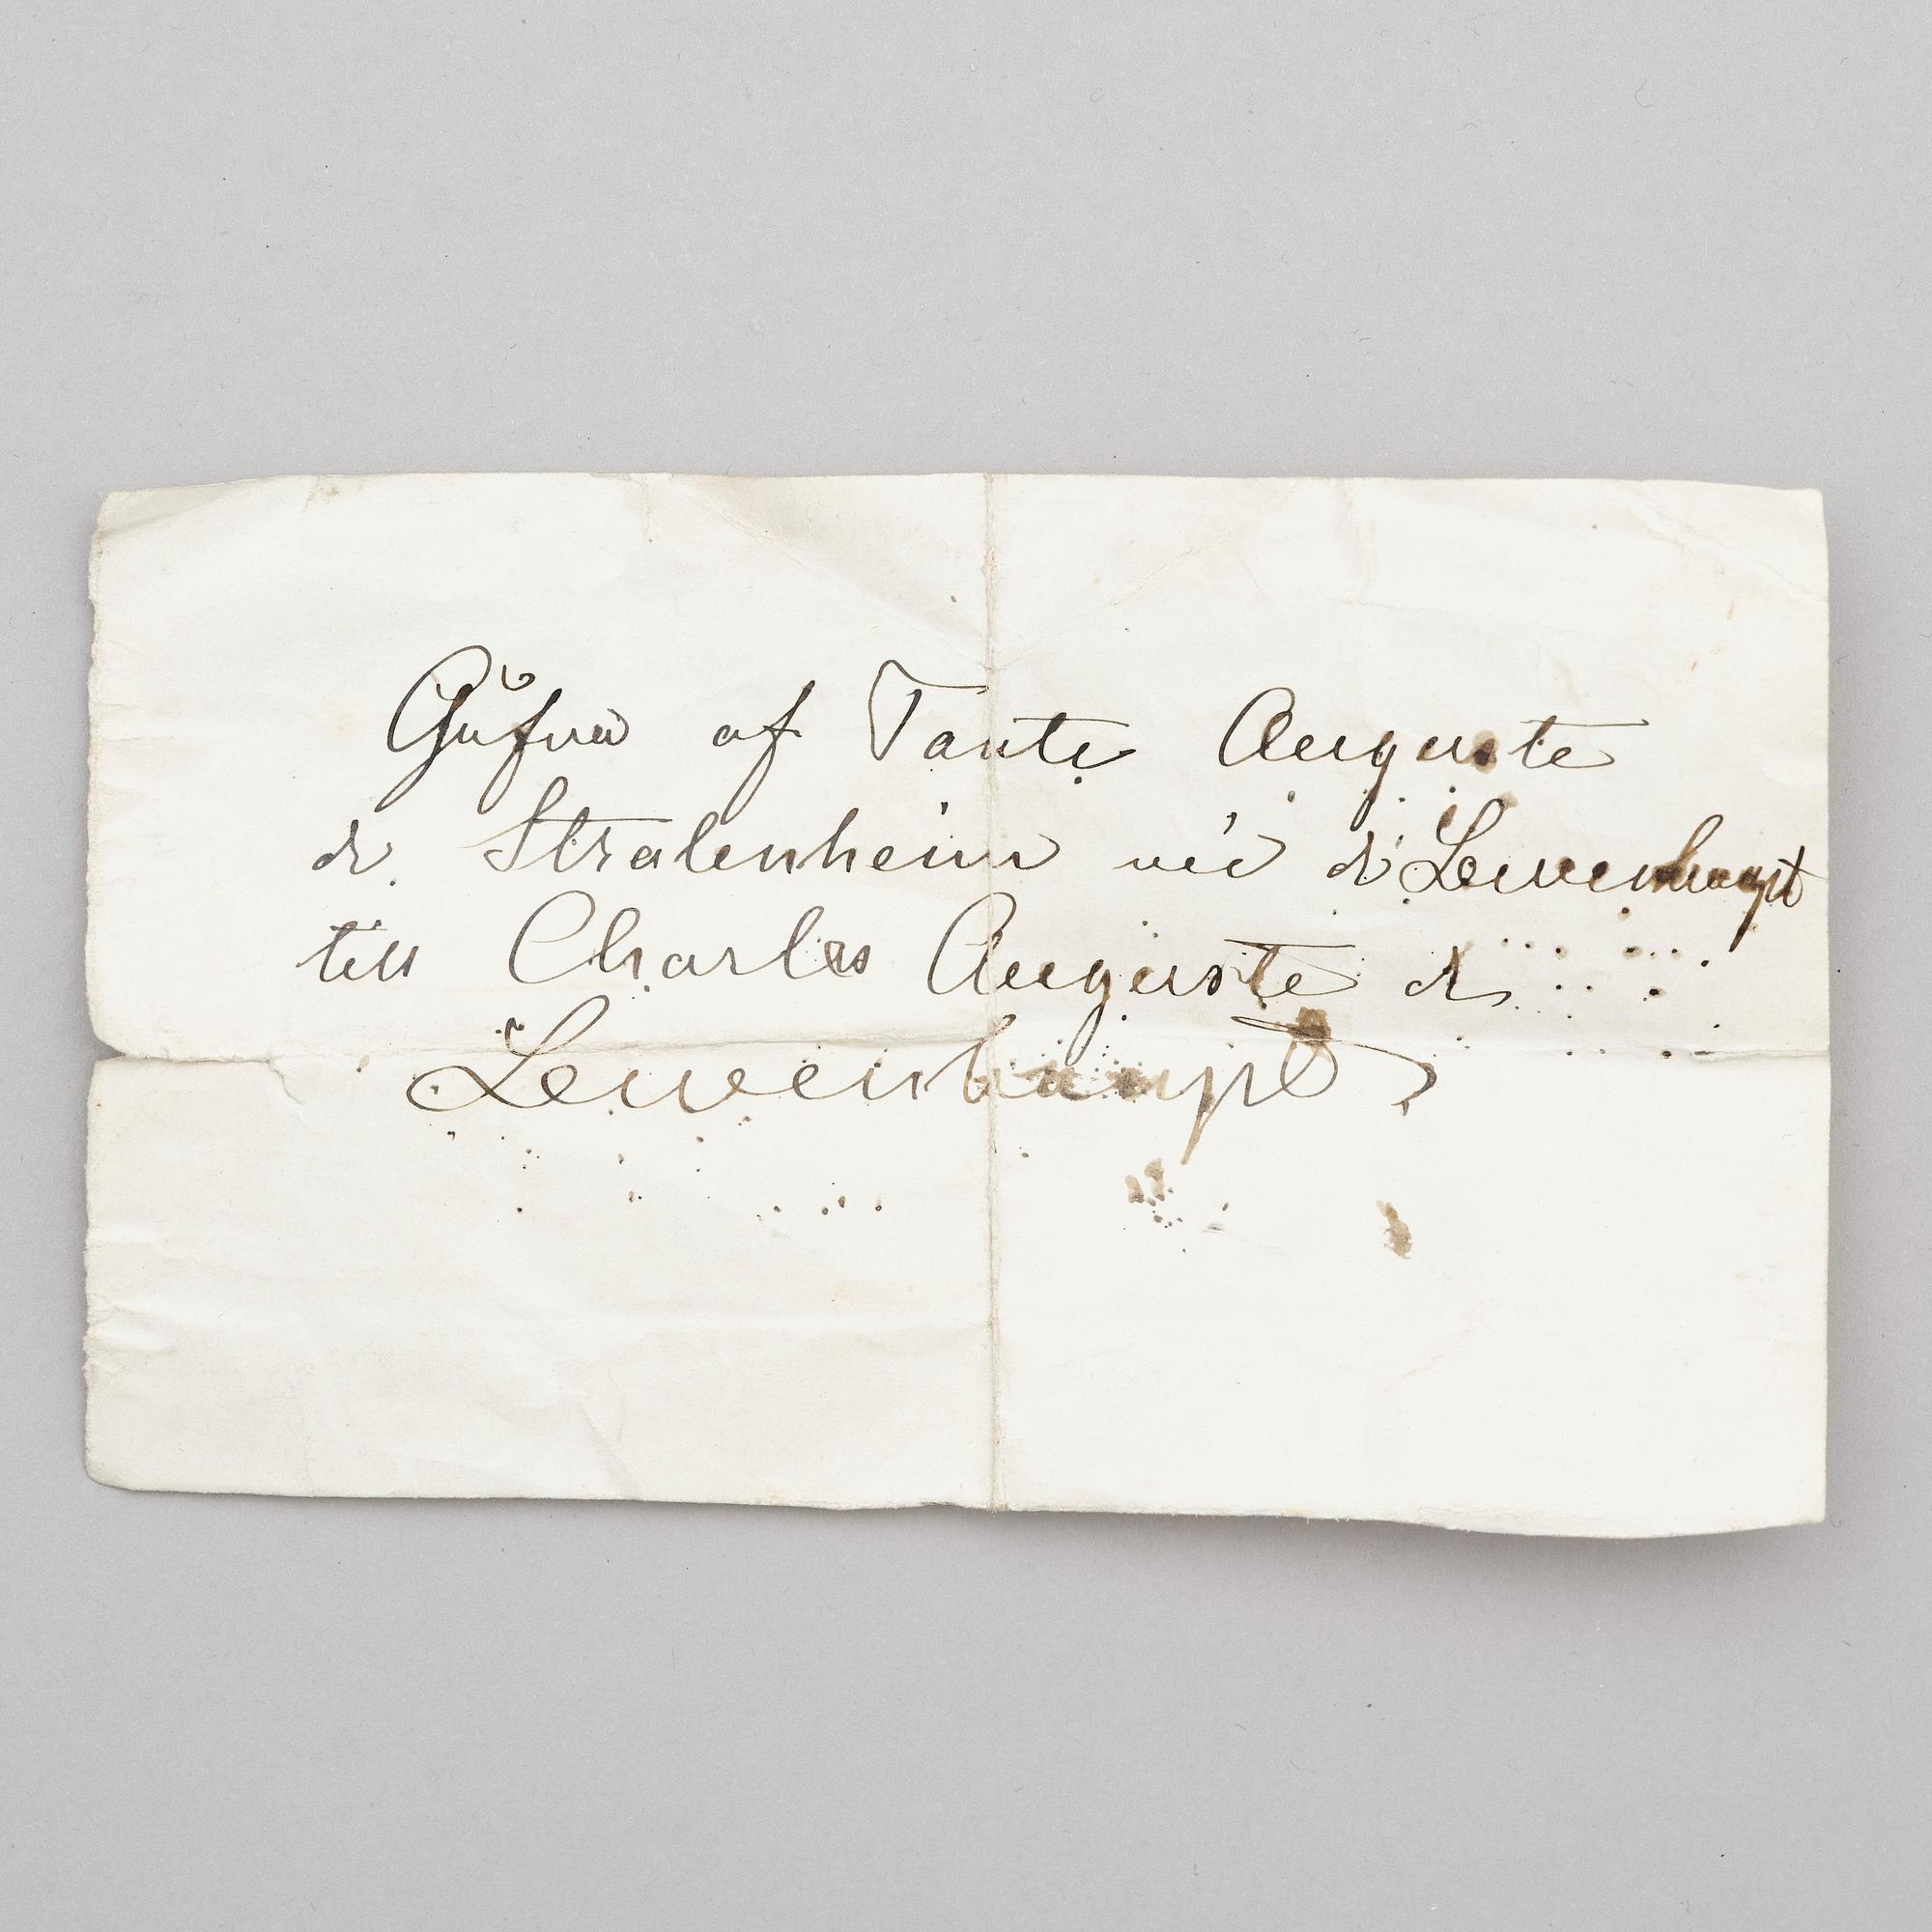 Gåfva af Tante Auguste
de Stralenheim née de Lewenhaupt
till Charles Auguste de
Lewenhaupt